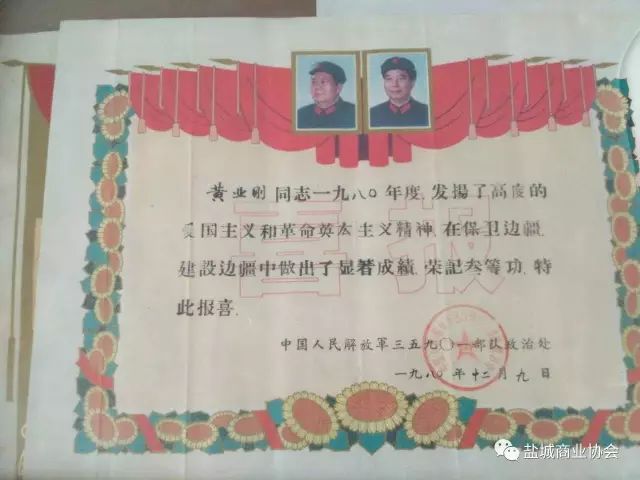 喜报
黄业刚同志一九八〇年度,发揚了高度的
爱国主义和革命英雄主义精神,在保卫边疆,
建設边疆中做出了显著成績,荣記叁等功,特
此报喜.
中国人民解放軍三五九〇一部队政治处
一九八〇年十二月九日
盐城商业协会